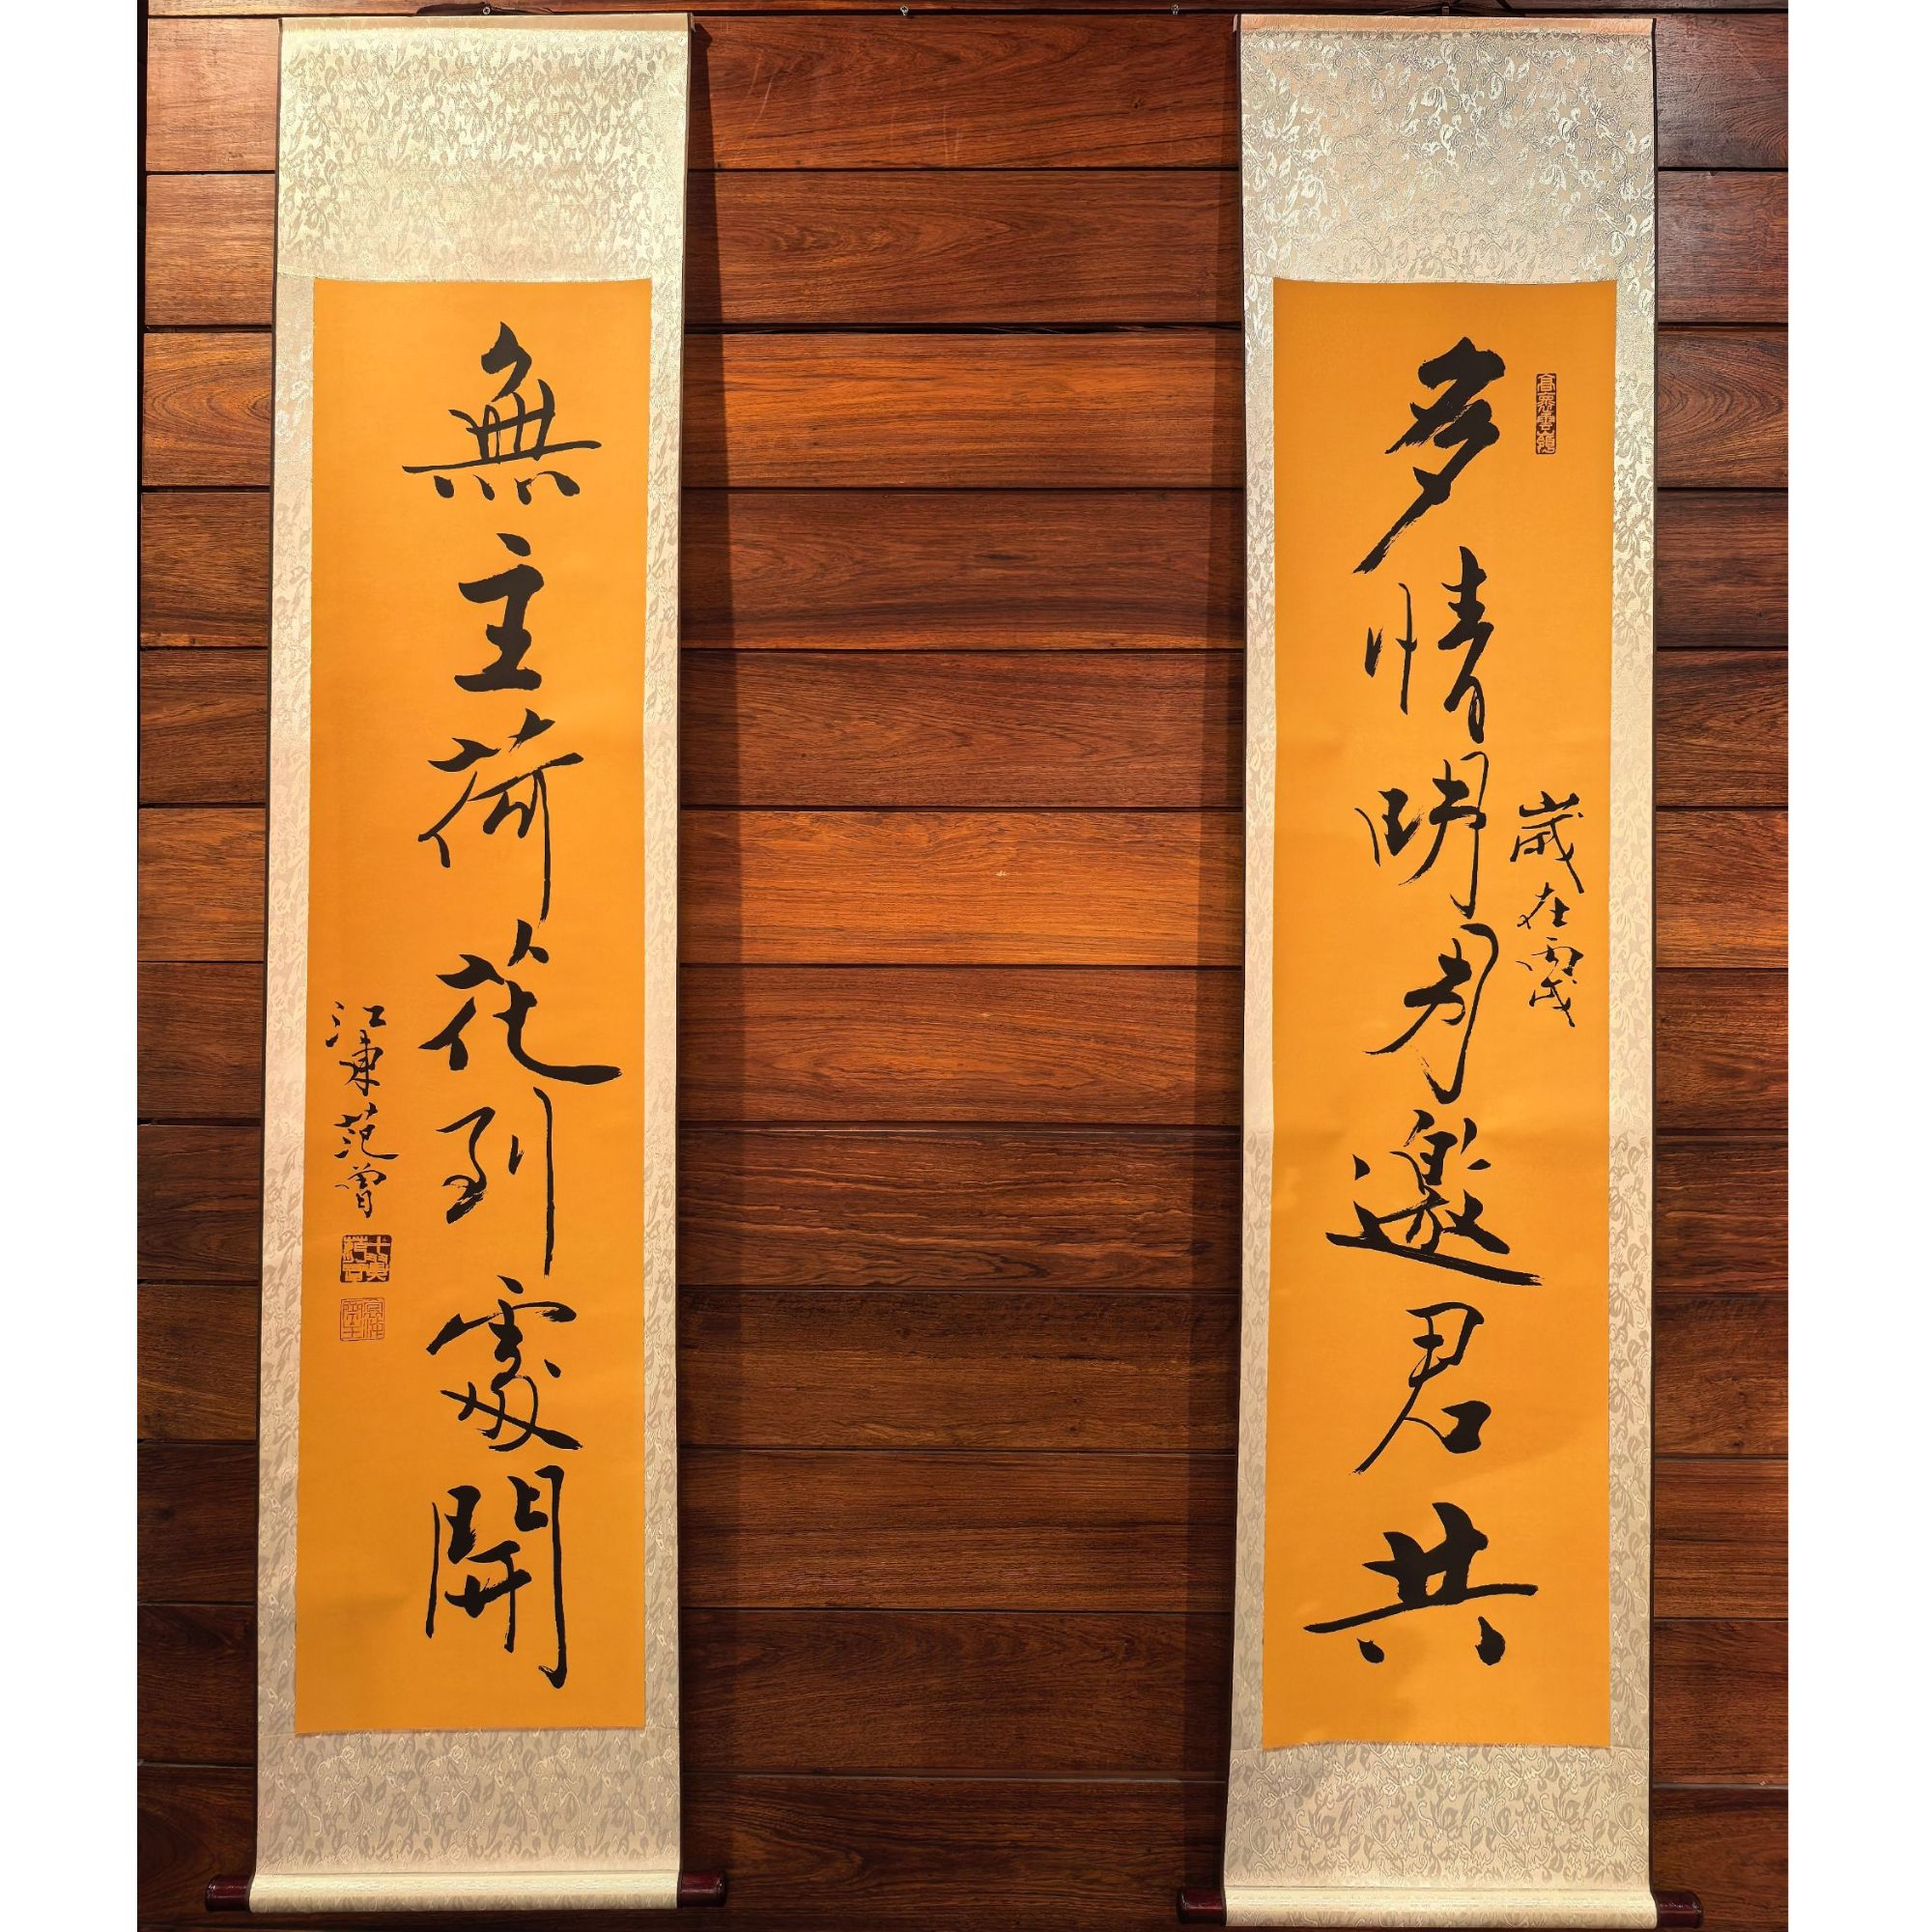 多情明月邀君共
歲在丙戌
無主荷花到處開
江東范曾